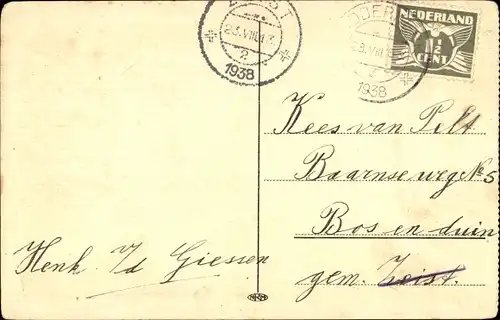 ZEIST
23.VIII.17
2
1938
ODER
3.VIII
1938
NEDERLAND
1½
CENT
Kees van Pelt
Baarnseweg No 5
Bos en duin
gem. Zeist.
Henk v/d Giessen